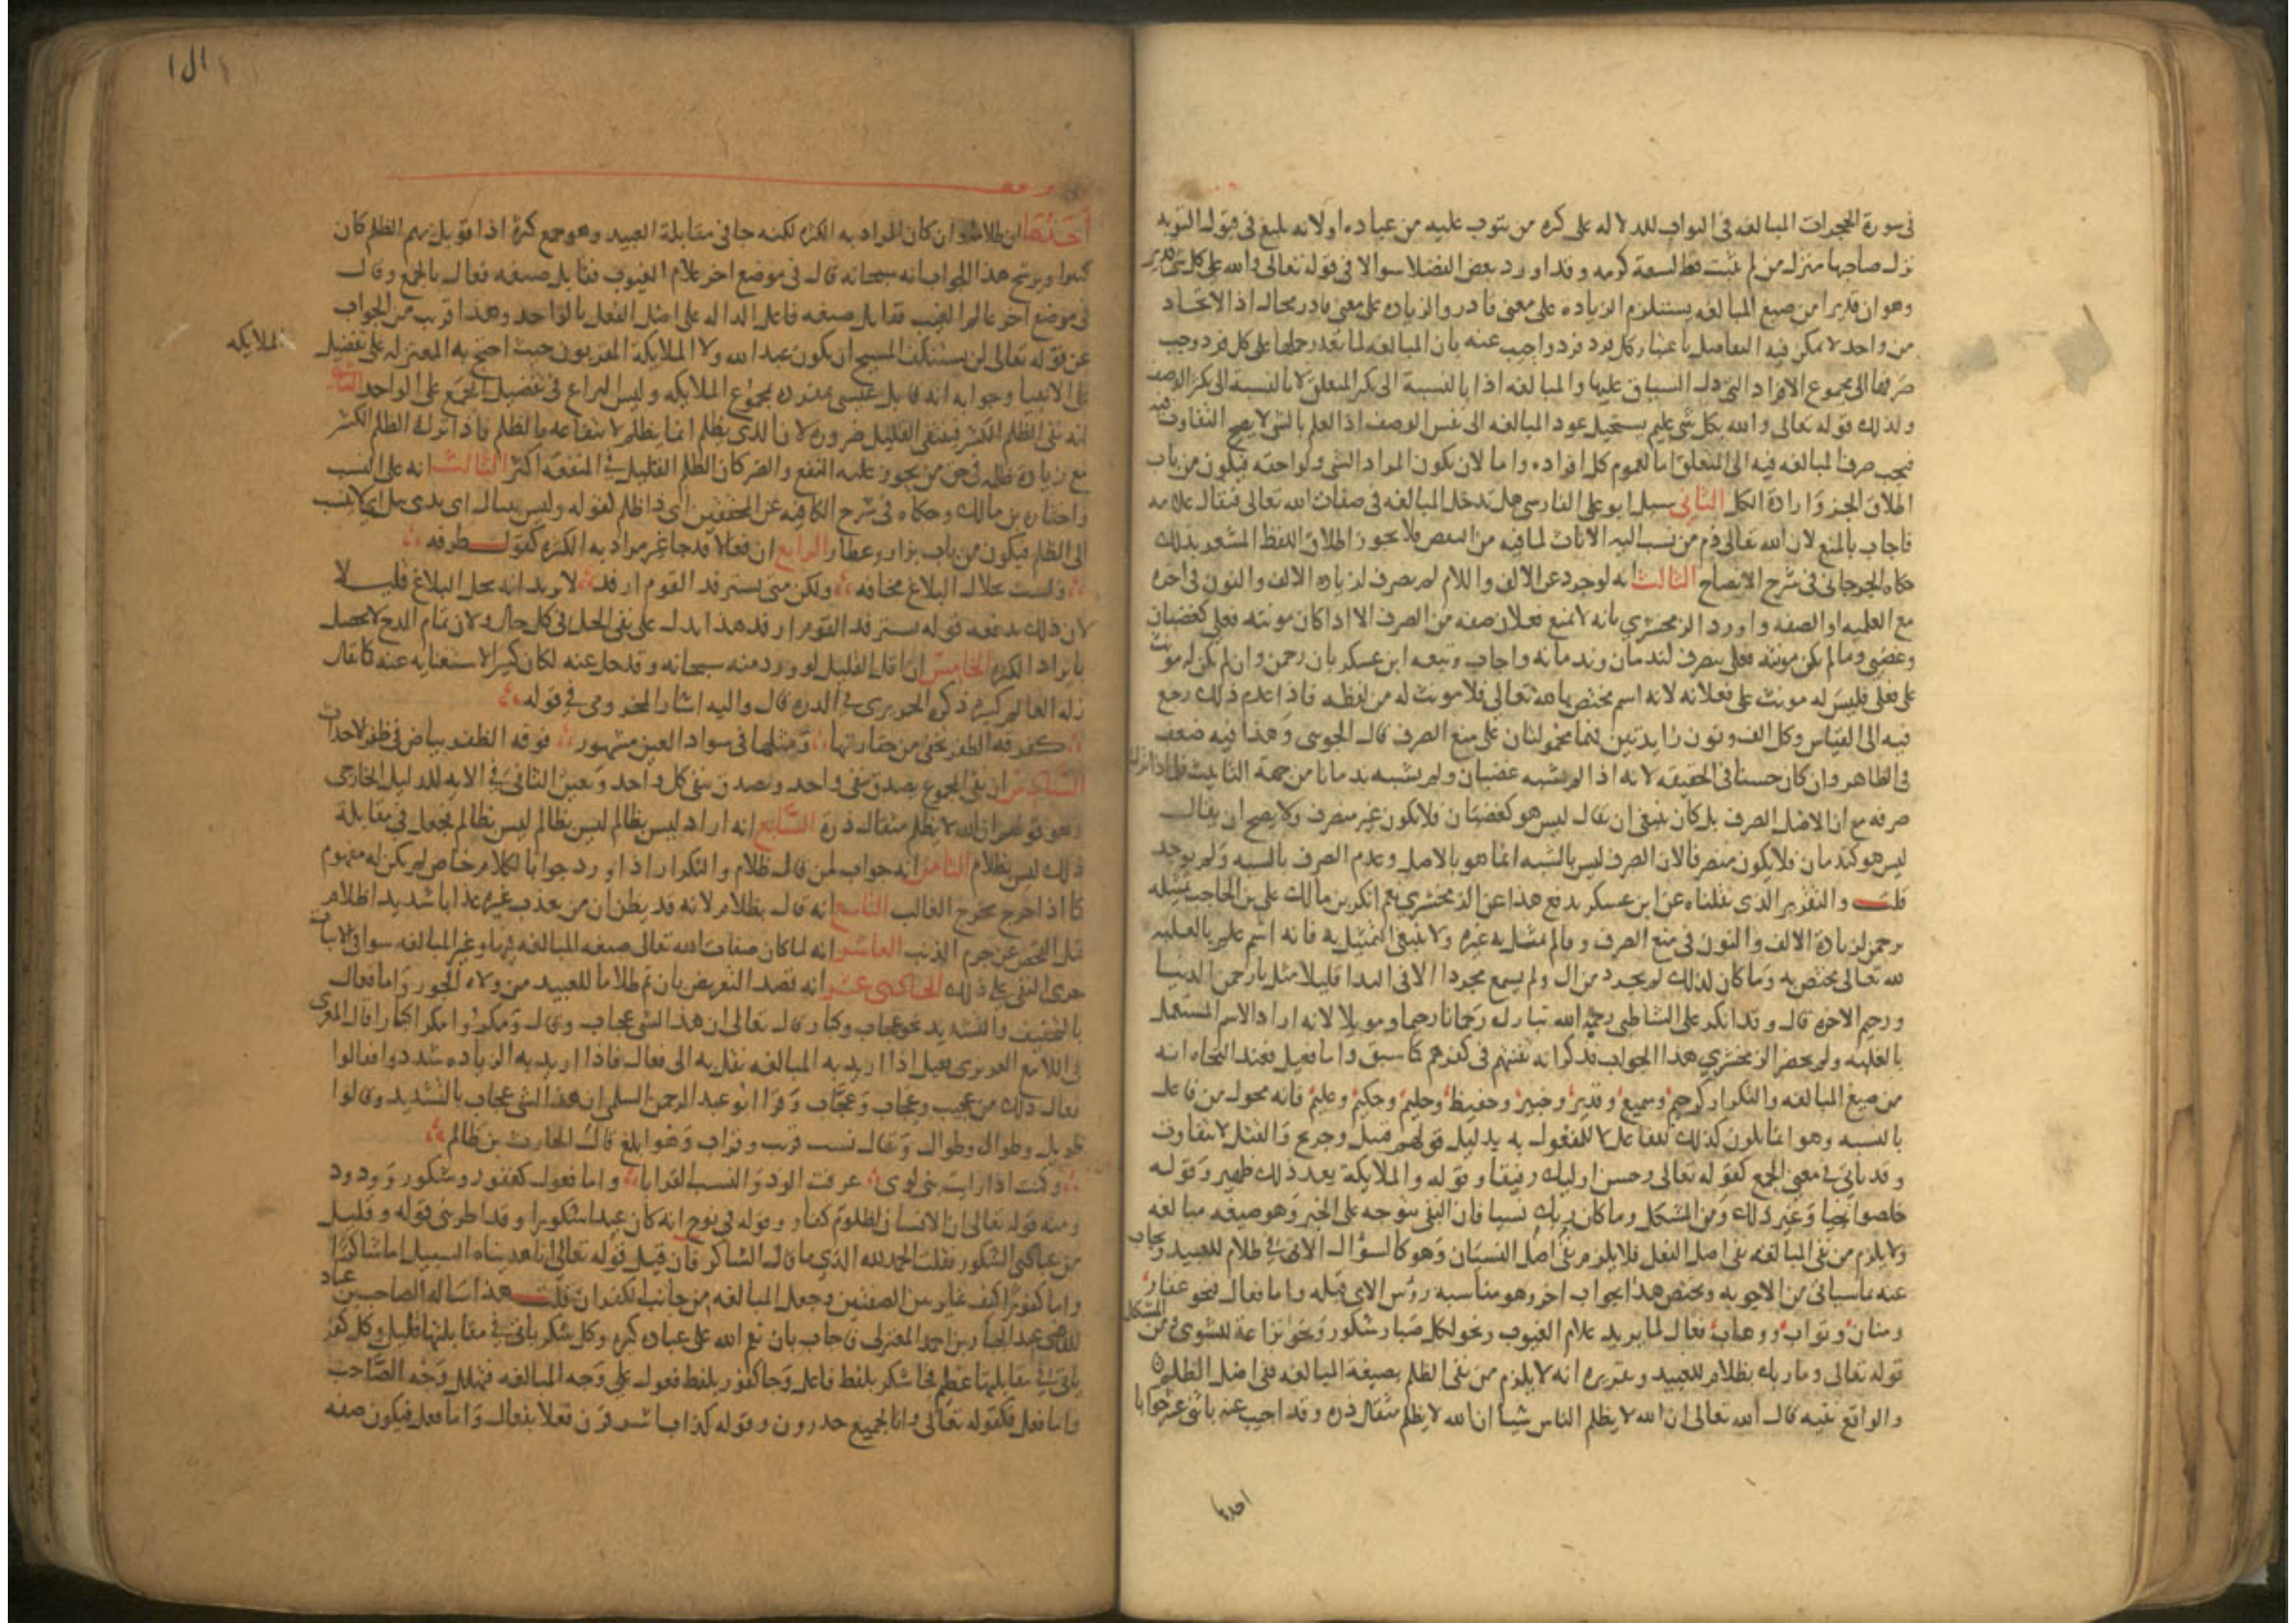 في سورة الحجرات المبالغه في التواب للدلاله على كثره من يتوب عليه من عباده او لانه بليغ في قبول التوبه
نزل صاحبها منزله من لم يذنب قط لسعة كرمه وقد اورد بعض الفضلا سوالا في قوله تعالى والله على كل شي قدير
وهو ان قديرا من صيغ المبالغه يستلزم الزياده على معنى قادر والزياده على معنى قادر محال اذ الاتحاد
من واحد لا يمكن فيه التفاضل باعتبار كل فرد فرد واجيب عنه بان المبالغه لما تعذر حملها على كل فرد وجب
صرفها الى مجموع الافراد التي دل السياق عليها والمبالغه اذا بالنسبة الى تكثر المتعلق لا بالنسبة الى تكثر الوصف
ولذلك قوله تعالى والله بكل شي عليم يستحيل عود المبالغه الى نفس الوصف اذ العلم بالشي لا يصح التفاوت فيه
فيجب صرف المبالغه فيه الى المتعلق اما لعموم كل افراده واما لان يكون المراد الشي ولواحقه فيكون من باب
اطلاق الجزؤ وارادة الكل الثاني سيل ابو علي الفارسي هل تدخل المبالغه في صفات الله تعالى فيقال علامه
فاجاب بالمنع لان الله تعالى ذم من نسب اليه الاناث لما فيه من النقص فلا يجوز اطلاق اللفظ المشعر بذلك
حكاه الجرجاني في شرح الايضاح الثالث انه لو جرد عن الالف واللام لم يصرف لزياده الالف والنون في اخره
مع العلميه او الصفه واورد الزمخشري بانه لا يمنع فعلان صفه من الصرف الا اذا كان مونثه فعلى كغضبان
وغضبى وما لم يكن مونثه فعلى ينصرف كندمان وندمانه واجاب وتبعه ابن عسكر بان رحمن وان لم يكن له مونث
على فعلى فليس له مونث على فعلانه لانه اسم مختص بالله تعالى فلا مونث له من لفظه فاذا عدم ذلك رجع
فيه الى القياس وكل الف ونون زايدتين فهما محمولتان على منع الصرف قال الجويني وهذا فيه ضعف
في الظاهر وان كان حسنا في الحقيقه لانه اذا لم يشبه غضبان ولم يشبه ندمانا من جهة التانيث فلماذا ترك
صرفه مع ان الاصل الصرف بل كان ينبغي ان يقال ليس هو كغضبان فلا يكون غير منصرف ولا يصح ان يقال
ليس هو كندمان فلا يكون منصرفا لان الصرف ليس بالشبه انما هو بالاصل وعدم الصرف بالشبه ولم يوجد
قلت والتقرير الذي نقلناه عن ابن عسكر يدفع هذا عن الزمخشري نعم انكر بن مالك على بن الحاجب تمثيله
برحمن لزيادة الالف والنون في منع الصرف وقال لم يمثل به غيره ولا ينبغي التمثيل به فانه اسم علم بالغلبه
لله تعالى مختص به وما كان لذلك لم يجرد من ال ولم يسمع مجردا الا في الندا قليلا مثل يا رحمن الدنيا
ورحيم الاخره قال وقد انكر على الشاطبي رحمه الله تبارك رحمانا رحيما وموئلا لانه اراد الاسم المستعمل
بالغلبه ولم يحضر الزمخشري هذا الجواب فذكر انه من تعنتهم في كفرهم كما سبق واما فعيل فعند النحاه انه
من صيغ المبالغه والتكرار كرحيم وسميع وقدير وخبير وحفيظ وحليم وحكيم وعليم فانه محول من فاعل
بالنسبه وهو انما يكون كذلك للفاعل لا للمفعول به بدليل قولهم قتيل وجريح والقتل لا يتفاوت
وقد ياتي في معنى الجمع كقوله تعالى وحسن اوليك رفيقا وقوله والملايكة بعد ذلك ظهير وقوله
خلصوا نجيا وغير ذلك ومن المشكل وما كان ربك نسيا فان النفي يتوجه على الخبر وهو صيغه مبالغه
ولا يلزم من نفي المبالغه نفي اصل الفعل فلا يلزم نفي اصل النسيان وهو كالسؤال الاتي في ظلام للعبيد ويجاب
عنه بما سياتي من الاجوبه ويختص هذا بجواب اخر وهو مناسبه رؤس الاي قبله واما فعال فنحو غفار
ومنان وتواب ووهاب فعال لما يريد علام الغيوب ونحو لكل صبار شكور ونحو نزاعة للشوى ومن المشكل
قوله تعالى وما ربك بظلام للعبيد وتقريره انه لا يلزم من نفي الظلم بصيغة المبالغه نفي اصل الظلم
والواقع نفيه قال الله تعالى ان الله لا يظلم الناس شيا ان الله لا يظلم مثقال ذره وقد اجيب عنه باثنى عشر جوابا
احدها
احدها ان ظلاما وان كان المراد به الكثره لكنه جا في مقابلة العبيد وهو جمع كثرة اذا قوبل بهم الظلم كان
كثيرا ويرشح هذا الجواب انه سبحانه قال في موضع اخر علام الغيوب فقابل صيغه فعال بالجمع وقال
في موضع اخر عالم الغيب فقابل صيغه فاعل الداله على اصل الفعل بالواحد وهذا قريب من الجواب
عن قوله تعالى لن يستنكف المسيح ان يكون عبدا لله ولا الملايكة المقربون حيث احتج به المعتزله على تفضيل الملايكه
على الانبيا وجوابه انه قابل عيسى بمفرده بمجموع الملايكه وليس النزاع في تفضيل الجمع على الواحد الثاني
انه نفى الظلم الكثير فينتفي القليل ضروره لان الذي يظلم انما يظلم لانتفاعه بالظلم فاذا ترك الظلم الكثير
مع زيادة ظلمه في حق من يجوز عليه النفع والضر كان الظلم القليل في المنفعه اكثر الثالث انه على النسب
واختاره بن مالك وحكاه في شرح الكافيه عن المحققين اي ذا ظلم لقوله وليس بنبال اي بذي نبل اي لا ينسب
الى الظلم فيكون من باب بزار وعطار الرابع ان فعالا قد جا غير مراد به الكثره كقول طرفه
ولست بحلال التلاع مخافه ولكن متى يسترفد القوم ارفد لا يريد انه يحل التلاع قليلا
لان ذلك يدفعه قوله يسترفد القوم ارفد هذا يدل على نفي الحل في كل حال ولان تمام المدح لا يحصل
بايراد الكثره الخامس ان اقل القليل لو ورد منه سبحانه وقد جل عنه لكان كثيرا لاستغنايه عنه كما يقال
زله العالم كبيره ذكره الحريري في الدره قال واليه اشار المخزومي في قوله
كفوفه الظفر تخفى من حقارتها ومثلها في سواد العين مشهور فوفه الظفر بياض في ظفر الاحداث
السادس ان نفي المجموع يصدق بنفي واحد ويصدق بنفي كل واحد ويعين الثاني في الايه للدليل الخارجي
وهو قوله ان الله لا يظلم مثقال ذرة السابع انه اراد ليس بظالم ليس بظالم ليس بظالم فجعل في مقابلة
ذلك ليس بظلام الثامن انه جواب لمن قال ظلام والتكرار اذا ورد جوابا لكلام خاص لم يكن له مفهوم
كما اذا خرج مخرج الغالب التاسع انه قال بظلام لانه قد يظن ان من يعذب غيره عذابا شديدا ظلام
قبل الفحص عن جرم الذنب العاشر انه لما كان صفات الله تعالى صيغه المبالغه فيها وغير المبالغه سوا في الاثبات
جرى النفي على ذلك الحادي عشر انه قصد التعريض بان ثم ظلاما للعبيد من ولاه الجور واما فعال
بالتخفيف والتشديد نحو عجاب وكبار قال تعالى ان هذا لشي عجاب وقال ومكروا مكرا كبارا قال المعري
في اللامع العزيزي فعيل اذا اريد به المبالغه نقل به الى فعال فاذا اريد به الزياده شددوا فقالوا
فعال ذلك من عجيب وعجاب وعجّاب وقرا ابو عبد الرحمن السلمي ان هذا لشي عجاب بالتشديد وقالوا
طويل وطوال وطوال ويقال نسب قريب وقراب وهو ابلغ قال الحارث بن ظالم
وكنت اذا رايت بني لوى عرفت الود والنسب القرابا واما فعول كغفور وشكور وودود
ومنه قوله تعالى ان الانسان لظلوم كفار وقوله في نوح انه كان عبدا شكورا وقد اطربني قوله وقليل
من عبادي الشكور فقلت الحمد لله الذي ما قال الشاكر فان قيل قوله تعالى انا هديناه السبيل اما شاكرا
واما كفورا كيف غاير بين الصفتين وجعل المبالغه من جانب الكفران قلت هذا ساله الصاحب بن عباد
للقاضي عبد الجبار بن احمد المعتزلي فاجاب بان نعم الله على عباده كثيره وكل شكر ياتي في مقابلتها قليل وكل كفر
ياتي في مقابلتها عظيم فجا شكر بلفظ فاعل وجا كفور بلفظ فعول على وجه المبالغه فتهلل وجه الصاحب
واما فعل فكقوله تعالى وانا لجميع حذرون وقوله كذاب اشر قرن فعلا بفعال واما فعل فيكون صفه